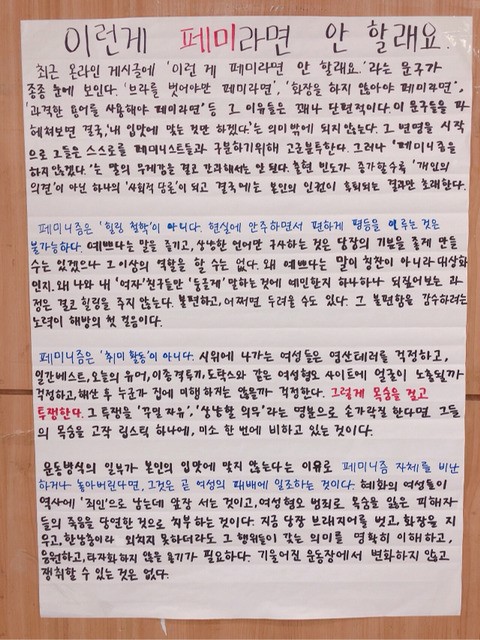 이런게 페미라면 안 할래요.
최근 온라인 게시글에 '이런 게 페미라면 안 할래요.'라는 문구가
종종 눈에 보인다. '브라를 벗어야만 페미라면', '화장을 하지 않아야 페미라면',
'과격한 용어를 사용해야 페미라면' 등 그 이유들은 꽤나 단편적이다. 이 문구들을 파
헤쳐보면 결국, '내 입맛에 맞는 것만 하겠다.'는 의미밖에 되지 않는다. 그 변명을 시작
으로 그들은 스스로를 페미니스트들과 구분하기위해 고군분투한다. 그러나 '페미니즘을
하지않겠다.'는 말의 무게감을 결코 간과해서는 안 된다. 출현 빈도가 증가할수록 '개인의
의견'이 아닌 하나의 '사회적 담론'이 되고 결국에는 본인의 인권이 후퇴되는 결과만 초래한다.
페미니즘은 '힐링 철학'이 아니다. 현실에 안주하면서 편하게 평등을 이루는 것은
불가능하다. 예쁘다는 말을 즐기고, 상냥한 언어만 구사하는 것은 당장의 기분을 좋게 만들
수는 있겠으나 그 이상의 역할을 할 수는 없다. 왜 예쁘다는 말이 칭찬이 아니라 대상화
인지. 왜 나와 내 '여자'친구들만 '둥글게' 말하는 것에 예민한지 하나하나 되짚어보는 과
정은 결코 힐링을 주지 않는다. 불편하고, 어쩌면 두려울 수도 있다. 그 불편함을 감수하려는
노력이 해방의 첫 걸음이다.
페미니즘은 '취미 활동'이 아니다. 시위에 나가는 여성들은 염산테러를 걱정하고,
일간베스트, 오늘의 유머, 이종격투기, 도탁스와 같은 여성혐오 사이트에 얼굴이 노출될까
걱정하고, 해산 후 누군가 집에 미행하지는 않을까 걱정한다. 그렇게 목숨을 걸고
투쟁한다. 그 투쟁을 '꾸밀 자유', '상냥할 의무'라는 명분으로 손가락질 한다면 그들
의 목숨을 고작 립스틱 하나에, 미소 한 번에 비하고 있는 것이다.
운동방식의 일부가 본인의 입맛에 맞지 않는다는 이유로 페미니즘 자체를 비난
하거나 놓아버린다면, 그것은 곧 여성의 패배에 일조하는 것이다. 혜화의 여성들이
역사에 '죄인'으로 남는데 앞장 서는 것이고, 여성혐오 범죄로 목숨을 잃은 피해자
들의 죽음을 당연한 것으로 치부하는 것이다. 지금 당장 브래지어를 벗고, 화장을 지
우고, 한남충이라 외치지 못하더라도 그 행위들이 갖는 의미를 명확히 이해하고,
응원하고, 타자화하지 않을 용기가 필요하다. 기울어진 운동장에서 변화하지 않고
쟁취할 수 있는 것은 없다.